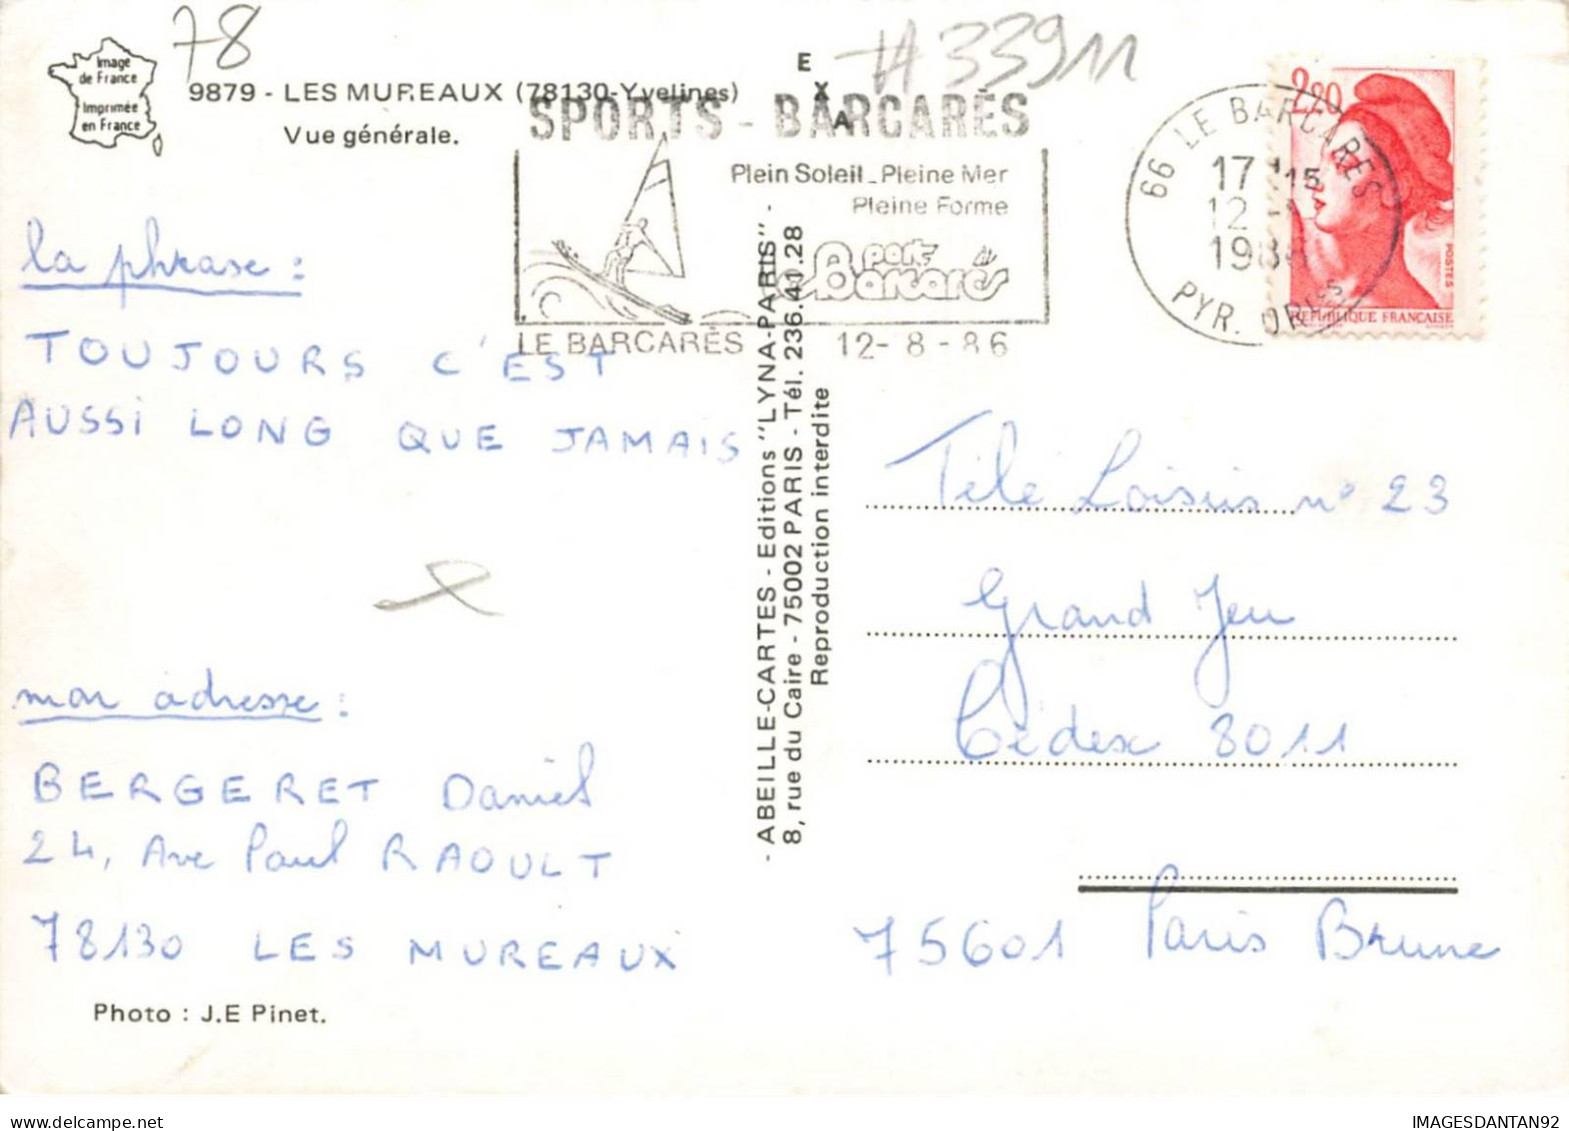 Image
de France
Imprimée
en France
78
9879 - LES MUREAUX (78130-Yvelines)
Vue générale.
E
X
A
#33911
SPORTS - BARCARÈS
Plein Soleil_Pleine Mer
Pleine Forme
port
Barcarès
LE BARCARÈS 12-8-86
66 LE BARCARES
17 15
12
198
PYR. OR
2,20
POSTES
REPUBLIQUE FRANÇAISE
la phrase :
TOUJOURS C'EST
AUSSI LONG QUE JAMAIS
mon adresse :
BERGERET Daniel
24, Ave Paul RAOULT
78130 LES MUREAUX
Photo : J.E Pinet.
- ABEILLE-CARTES - Editions "LYNA-PARIS" -
8, rue du Caire - 75002 PARIS - Tél. 236.41.28
Reproduction interdite
Télé Loisirs n° 23
Grand Jeu
Cédex 8011
75601 Paris Brune
IMAGESDANTAN92